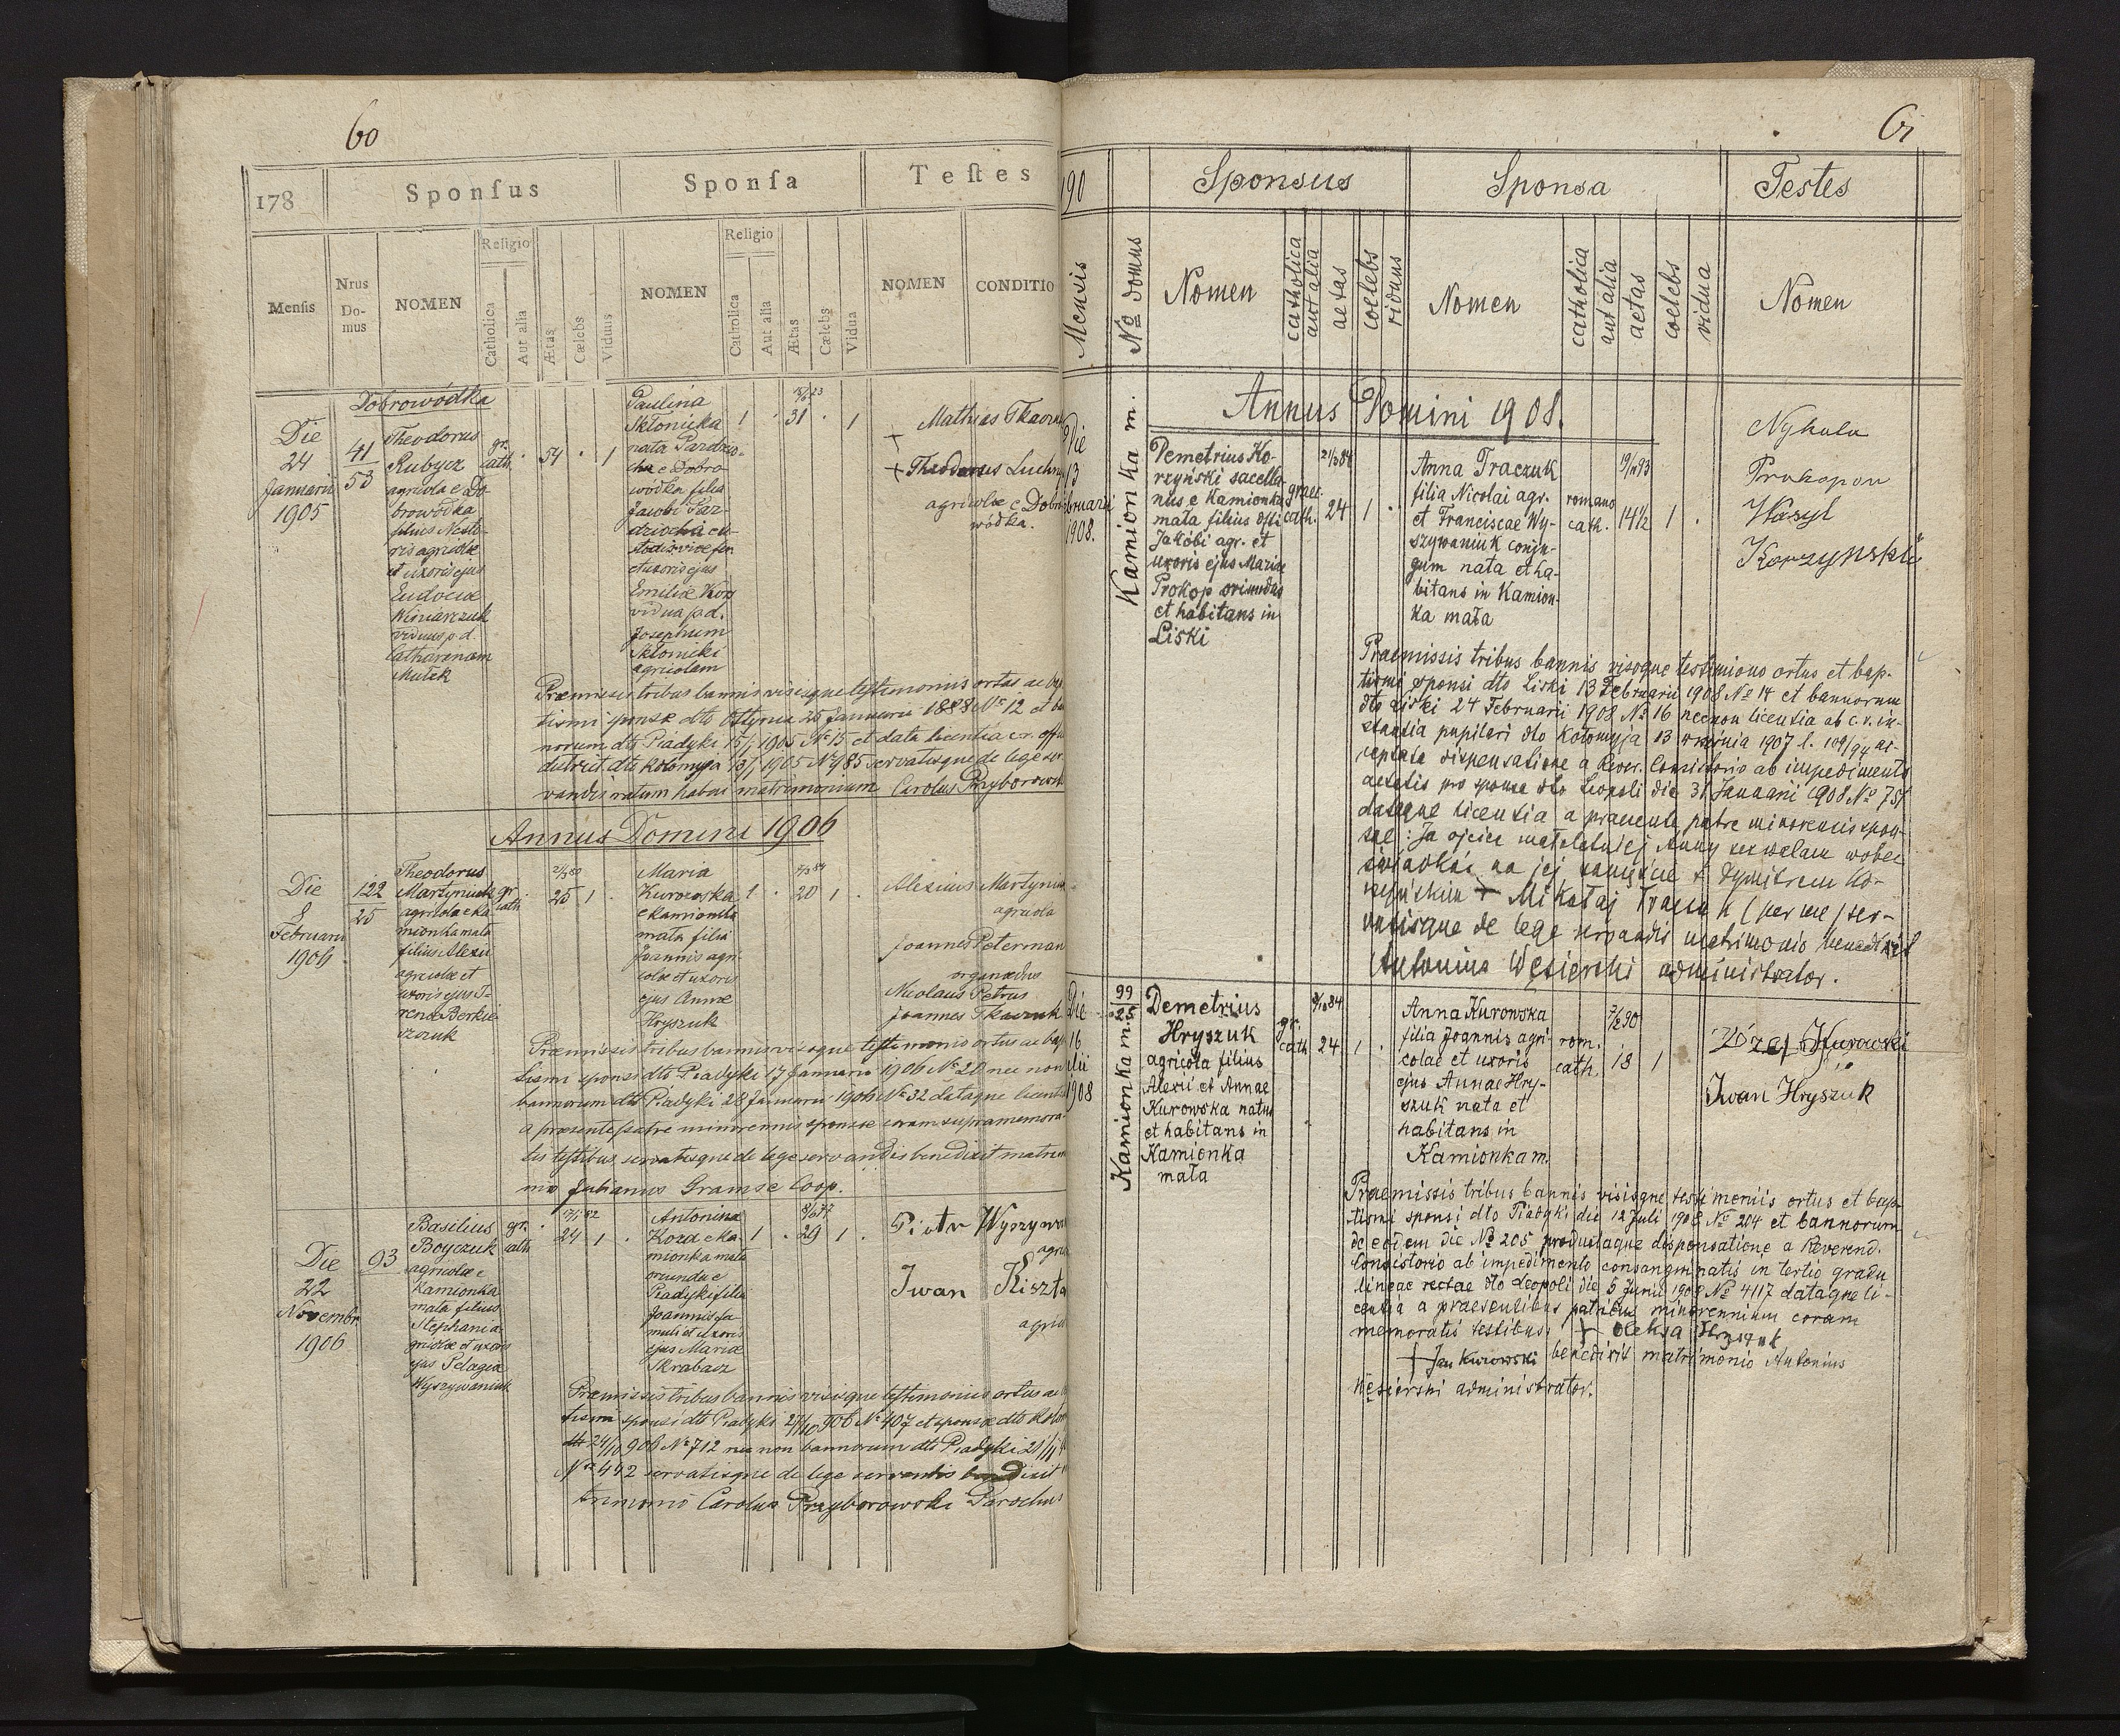 60
178
Sponſus
Sponſa
Teſtes
Menſis
Nrus
Do-
mus
NOMEN
Religio
Catholica
Aut alia
Ætas
Cælebs
Viduus
NOMEN
Religio
Catholica
Aut alia
Ætas
Cælebs
Vidua
NOMEN
CONDITIO
Die
24
Januarii
1905
Dobrowódka
41
53
Theodorus
Rubycz
agricola e Do-
browódka
filius Nesto-
ris agricolæ
et uxoris ejus
Eudociæ
Winiarczuk
viduus p. d.
Catharinam
Mutek
gr.
cath.
54
1
Paulina
Skłonicka
nata Pazdzio-
cha e Dobro-
wódka filia
Jacobi Paz-
dziocha cu-
stodis viæ fer.
et uxoris ejus
Emiliæ Kos
vidua p. d.
Josephum
Skłonicki
agricolam
1
31
1
+ Mathias Tkaczu
+ Theodorus Luchny
agricolæ e Dobro
wódka.
Præmissis tribus bannis visisque testimoniis ortus ac bap
tismi sponsæ dto Ottynia 25 Januarii 1888 No 12 et ba
norum dto Piadyki 15/1 1905 No 15 et data licentia c. r. offic
district. dto Kołomyja 13/1 1905 No 985 servatisque de lege ser
vandis ratum habui matrimonium Carolus Przyborowski
Annus Domini 1906
Die
8
Februarii
1906
122
25
Theodorus
Martyniuk
agricola e Ka
mionka mała
filius Alexii
agricolæ et
uxoris ejus I-
renæ Berkie
szczuk
gr.
cath
21/3 80
25
1
Maria
Kurowska
e Kamionka
mała filia
Joannis agri-
colæ et uxoris
ejus Annæ
Hryszuk
1
20
1
Alexius Martyniu
agricola
Joannes Peterman
organædus
Nicolaus Petrus
Joannes Tkaczuk
Præmissis tribus bannis visisque testimonio ortus ac bap
tismi sponsi dto Piadyki 17 Januarii 1906 No 20 nec non
bannorum dto Piadyki 28 Januarii 1906 No 32 dataque licentia
a præsente patre minorennis sponsæ coram supramemora
tis testibus servatisque de lege servandis benedixit matrim
nio Julianus Gramse Coop.
Die
22
Novembr
1906
93
Basilius
Boyczuk
agricola e
Kamionka
mała filius
Stephani a-
gricolæ et uxoris
ejus Pelagiæ
Wyszywaniuk
gr.
cath
24
1
Antonina
Kozd e Ka
mionka mała
oriunda e
Piadyki filia
Joannis fa
muli et uxoris
ejus Mariæ
Skrabacz
1
29
1
Piotr Wyszywa
agric
Iwan Kiszta
agric
Præmissis tribus bannis visisque testimoniis ortus ac b
tismi sponsi dto Piadyki 27/10 906 No 407 et sponsæ dto Kołom
24/10 906 No 712 nec non bannorum dto Piadyki 21/11
No 442 servatisque de lege servandis benedixit
trimonio Carolus Przyborowski Parochus
61
190
Sponsus
Sponsa
Testes
Mensis
No domus
Nomen
catholica
aut alia
aetas
coelebs
viduus
Nomen
catholica
aut alia
aetas
coelebs
vidua
Nomen
Annus Domini 1908.
Die
13
bruarii
1908.
Kamionka m.
Demetrius Ko-
rzyński sacella-
nus e Kamionka
mała filius dfti
Jakobi agr. et
uxoris ejus Mariæ
Prokop oriundus
et habitans in
Liski
graec.
cath.
21/3 84
24
1
Anna Traczuk
filia Nicolai agr.
et Franciscae Wy-
szywaniuk conju-
gum nata et ha-
bitans in Kamion-
ka mała
romano
cath.
14½
1
Nykola
Prokopow
Wasyl
Korzynskii
Praemissis tribus bannis visoque testimonio ortus et bap-
tismi sponsi dto Liski 13 Februarii 1908 No 14 et bannorum
dto Liski 24 Februarii 1908 No 16 necnon licentia ab c. r. in-
stantia pupilari dto Kołomyja 13 września 1907 l. 109/94 ac-
ceptata dispensatione a Rever. Consistorio ab impedimento
aetatis pro sponsa dto Leopoli die 31 Januarii 1908 No 751
dataque licentia a praesente patre minorennis spon-
sae: Ja ojciec małoletniej Anny zezwalam wobec
świadków na jej zamęście z Dymitrem Ko-
rzyńskim + Mikołaj Traczuk (per me) ser-
vatisque de lege servandis matrimonio benedixit
Antonius Wesierski administrator.
Die
16
ulii
1908
99
25
Kamionka m.
Demetrius
Hryszuk
agricola filius
Alexii et Annae
Kurowska natus
et habitans in
Kamionka
mała
gr.
cath
24
1
Anna Kurowska
filia Joannis agri-
colae et uxoris
ejus Annae Hry-
szuk nata et
habitans in
Kamionka m.
rom.
cath.
7/2 90
18
1
Józef Kurowski
Iwan Hryszuk
Praemissis tribus bannis visisque testimoniis ortus et bap-
tismi sponsi dto Piadyki die 12 Juli 1908 No 204 et bannorum
de eodem die No 205 productaque dispensatione a Reverend.
Consistorio ab impedimento consanguinitatis in tertio gradu
lineae rectae dto Leopoli die 5 Junii 1908 No 4117 dataque li-
centia a praesentibus patribus minorennium coram
memoratis testibus: + Oleksa Hryszuk
+ Jan Kurowski benedixit matrimonio Antonius
Wesierski administrator.